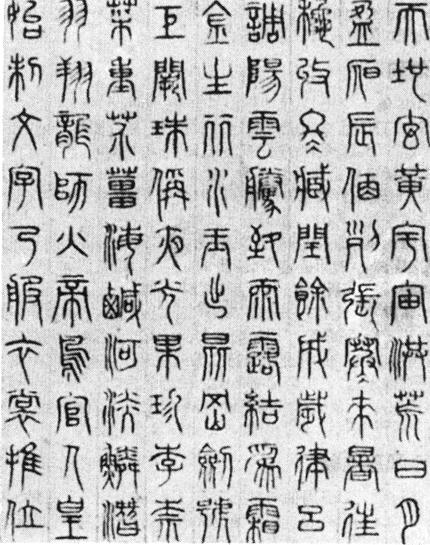 天地玄黃宇宙洪荒日月
盈昃辰宿列張寒來暑往
秋收冬藏閏餘成歲律呂
調陽雲騰致雨露結為霜
金生麗水玉出崑岡劍號
巨闕珠稱夜光果珍李柰
菜重芥薑海鹹河淡鱗潛
羽翔龍師火帝鳥官人皇
始制文字乃服衣裳推位